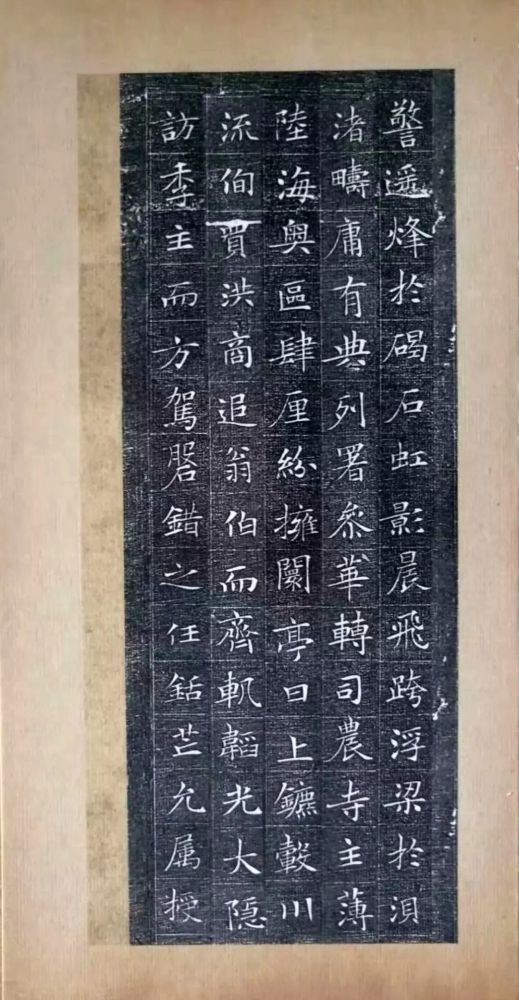 警遥烽於碣石虹影晨飛跨浮梁於浿
渚疇庸有典列署叅華轉司農寺主薄
陸海奥區肆厘紛擁闤亭日上鑣轂川
流佝賈洪商追翁伯而齊軏韜光大隠
訪季主而方駕盤錯之任銛芒允属授